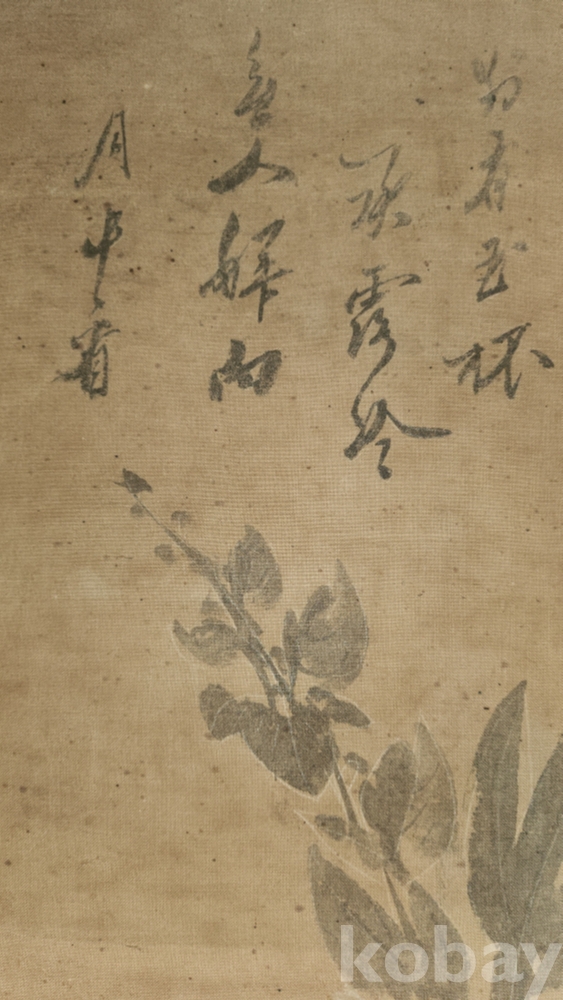 別有玉杯
承露冷
無人解向
月中看
kobay